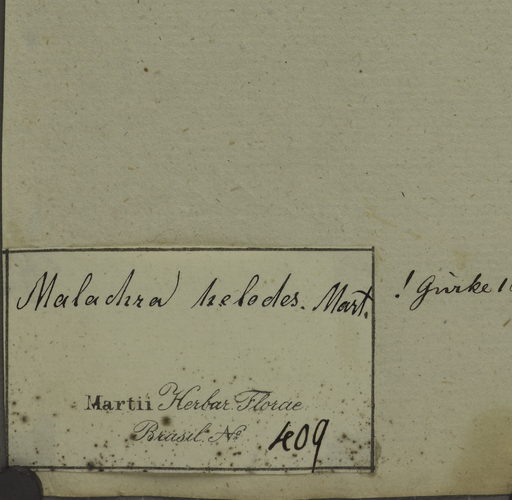 Malachra helodes. Mart.
! Gürke
Martii Herbar. Florae
Brasil. No 409